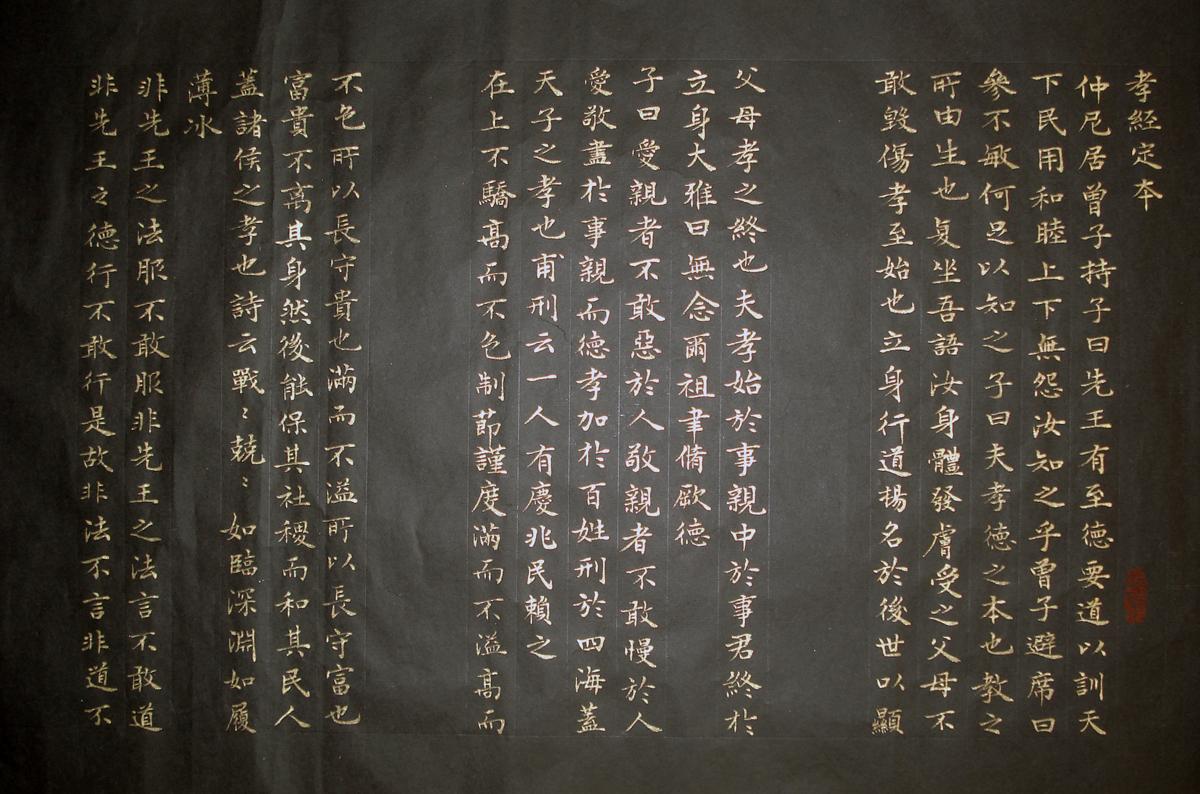 孝經定本
仲尼居曾子持子曰先王有至德要道以訓天
下民用和睦上下無怨汝知之乎曾子避席曰
參不敏何足以知之子曰夫孝德之本也教之
所由生也复坐吾語汝身體發膚受之父母不
敢毀傷孝至始也立身行道楊名於後世以顯
父母孝之終也夫孝始於事親中於事君終於
立身大雅曰無念爾祖聿脩厥德
子曰愛親者不敢惡於人敬親者不敢慢於人
愛敬盡於事親而德孝加於百姓刑於四海蓋
天子之孝也甫刑云一人有慶兆民賴之
在上不驕高而不色制節謹度滿而不溢高而
不色所以長守貴也滿而不溢所以長守富也
富貴不离其身然後能保其社稷而和其民人
蓋諸侯之孝也詩云戰〻兢〻如臨深淵如履
薄冰
非先王之法服不敢服非先王之法言不敢道
非先王之德行不敢行是故非法不言非道不